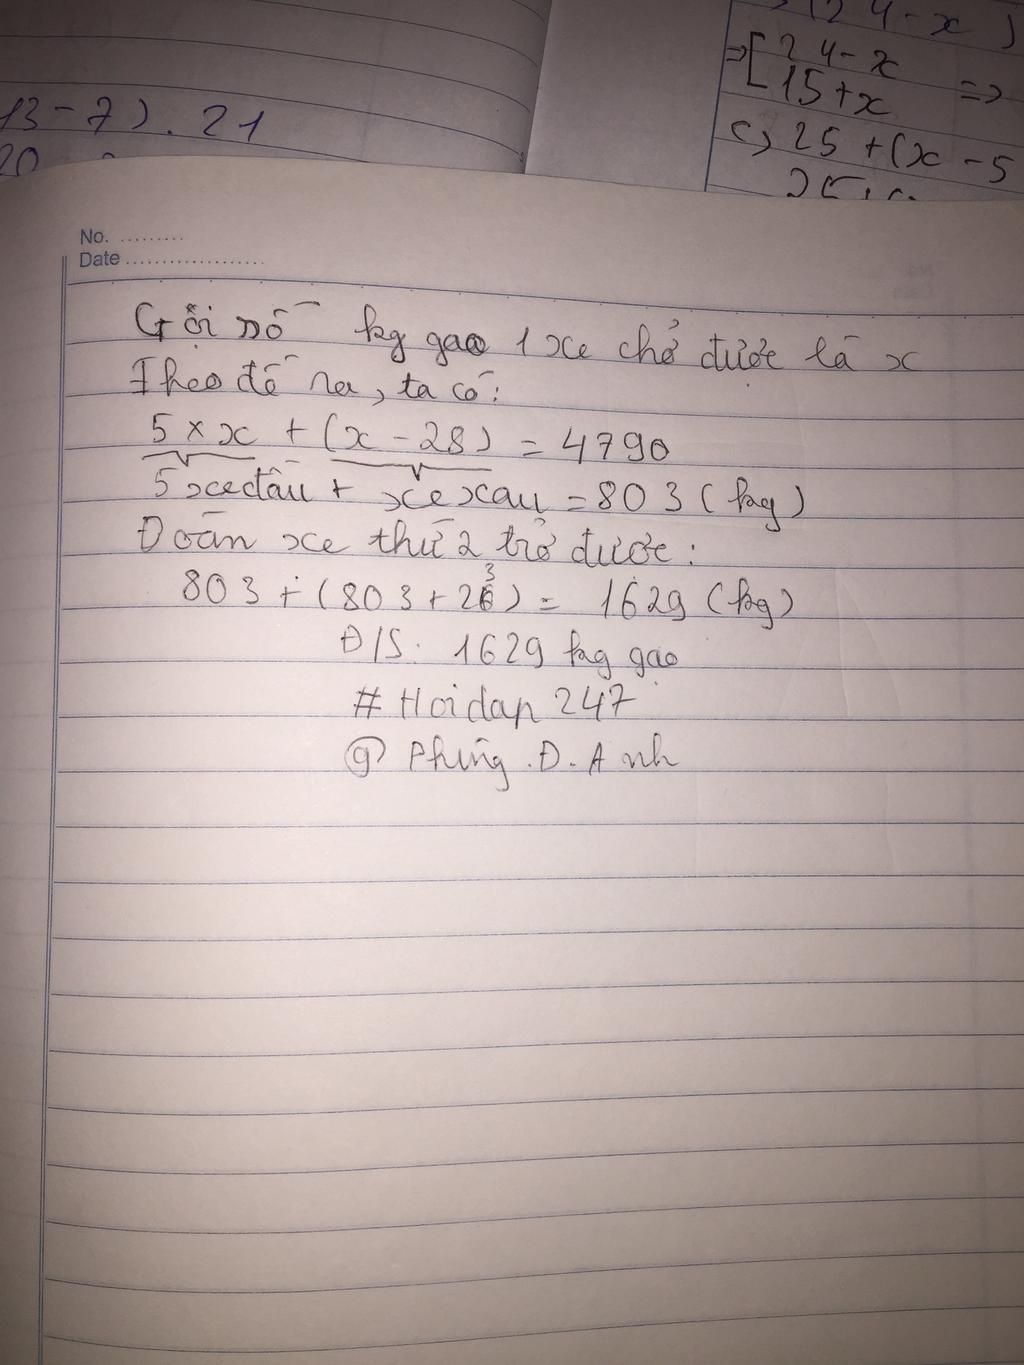 13 - 7) . 21
20
(24 - x)
=> [ 24 - x =>
15 + x
c) 25 + (x - 5
No. .........
Date ....................
Gọi số kg gạo 1 xe chở được là x
Theo đề ra, ta có:
5 × x + (x - 28) = 4790
5 xe đầu + xe xau = 803 (kg)
Đoàn xe thứ 2 trở được:
803 + (803 + 23) = 1629 (kg)
Đ/S: 1629 kg gạo
# Hoidap 247
@ Phùng .Đ. Anh